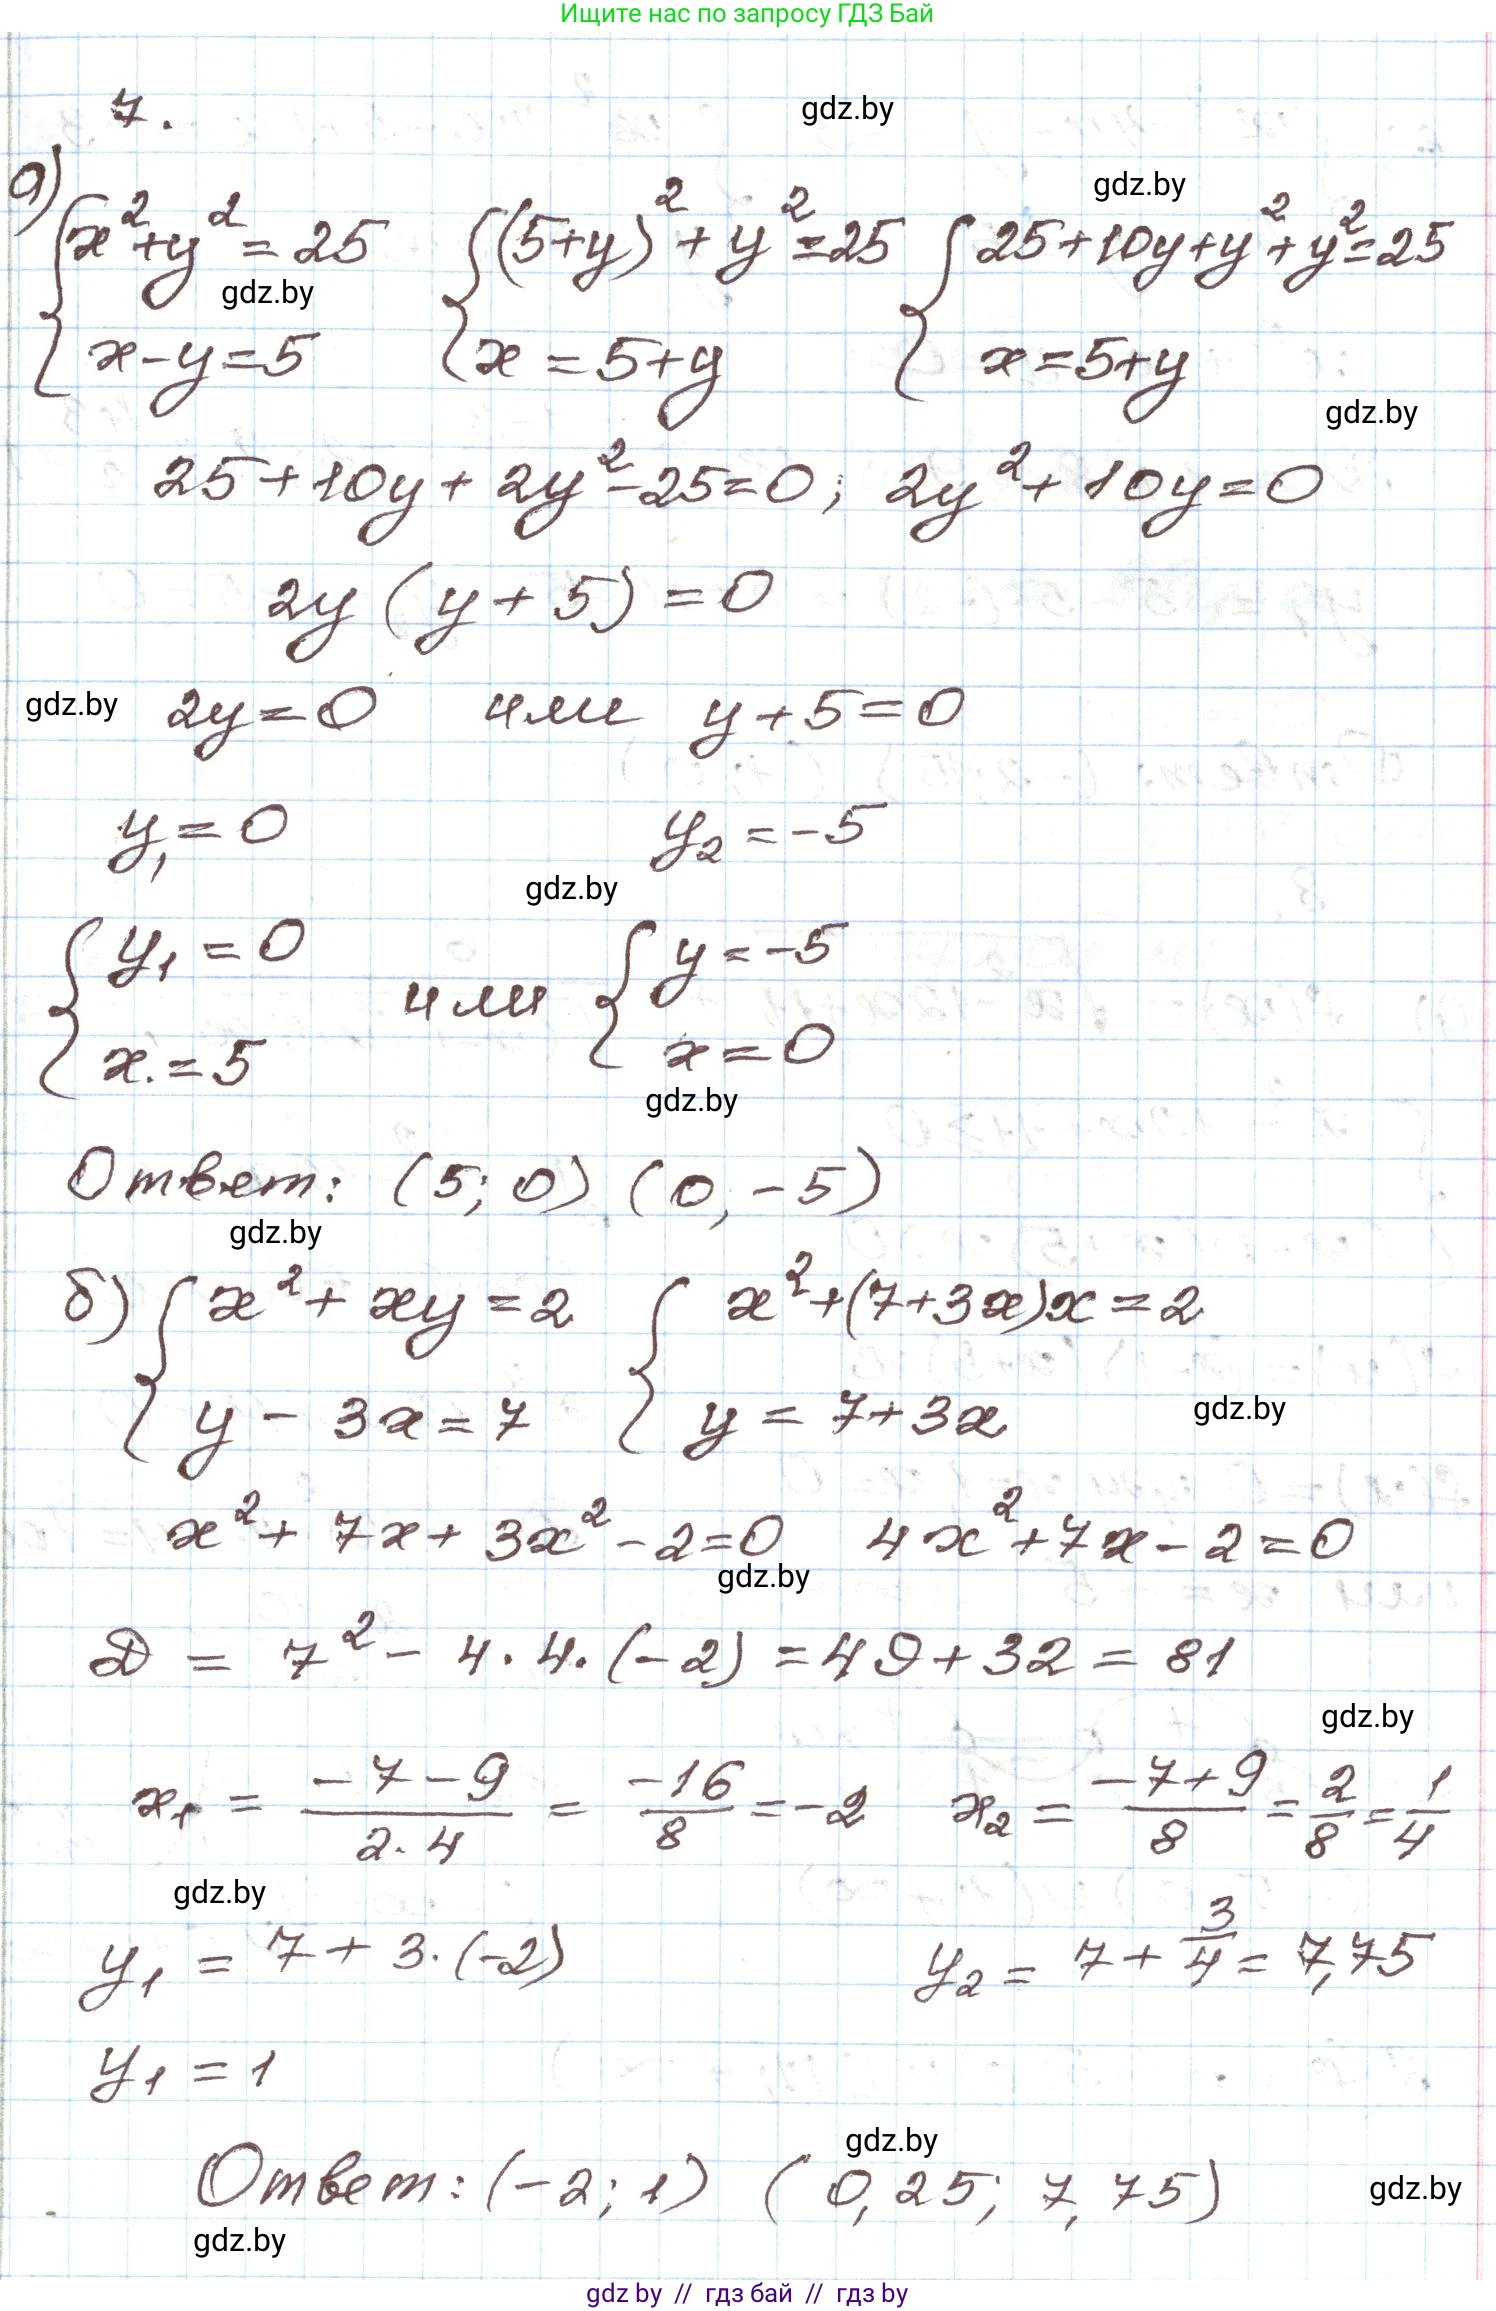 Ищите нас по запросу ГДЗ Бай
7.
gdz.by
а)
gdz.by
{ x² + y² = 25 { (5+y)² + y² = 25 { 25+10y+y²+y²=25
gdz.by
x - y = 5 x = 5+y x = 5+y
gdz.by
25+10y+2y²-25=0; 2y²+10y=0
2y(y+5)=0
gdz.by 2y=0 или y+5=0
y₁=0 y₂=-5
gdz.by
{ y₁=0 или { y=-5
x.=5 x=0
gdz.by
Ответ: (5; 0) (0, -5)
gdz.by
б) { x² + xy = 2 { x² + (7+3x)x = 2
y - 3x = 7 y = 7+3x
gdz.by
x² + 7x + 3x² - 2 = 0 4x² + 7x - 2 = 0
gdz.by
D = 7² - 4·4·(-2) = 49+32 = 81
gdz.by
x₁ = (-7-9)/(2·4) = -16/8 = -2 x₂ = (-7+9)/8 = 2/8 = 1/4
gdz.by
y₁ = 7+3·(-2) y₂ = 7 + 3/4 = 7,75
y₁ = 1
gdz.by
Ответ: (-2; 1) (0,25; 7,75)
gdz.by
gdz.by
gdz by // гдз бай // гдз by